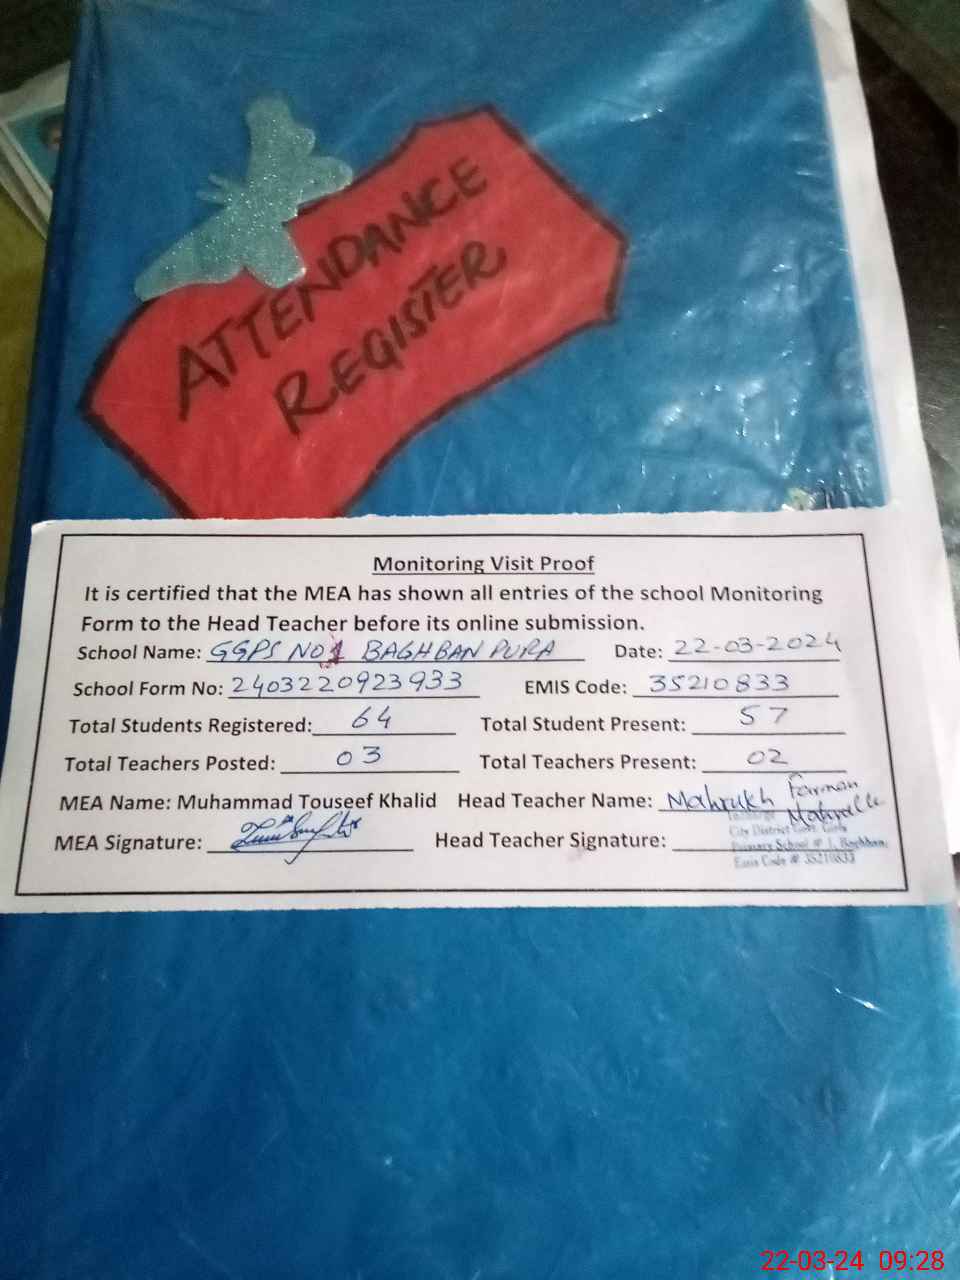 ATTENDANCE
REGISTER
Monitoring Visit Proof
It is certified that the MEA has shown all entries of the school Monitoring
Form to the Head Teacher before its online submission.
School Name: GGPS NO 1 BAGHBAN PURA Date: 22-03-2024
School Form No: 2403220923933 EMIS Code: 35210833
Total Students Registered: 64 Total Student Present: 57
Total Teachers Posted: 03 Total Teachers Present: 02
MEA Name: Muhammad Touseef Khalid Head Teacher Name: Mahrukh Farman
MEA Signature: Head Teacher Signature:
Incharge
City District Govt. Girls
Primary School # 1, Baghban
Emis Code # 35210833
22-03-24 09:28